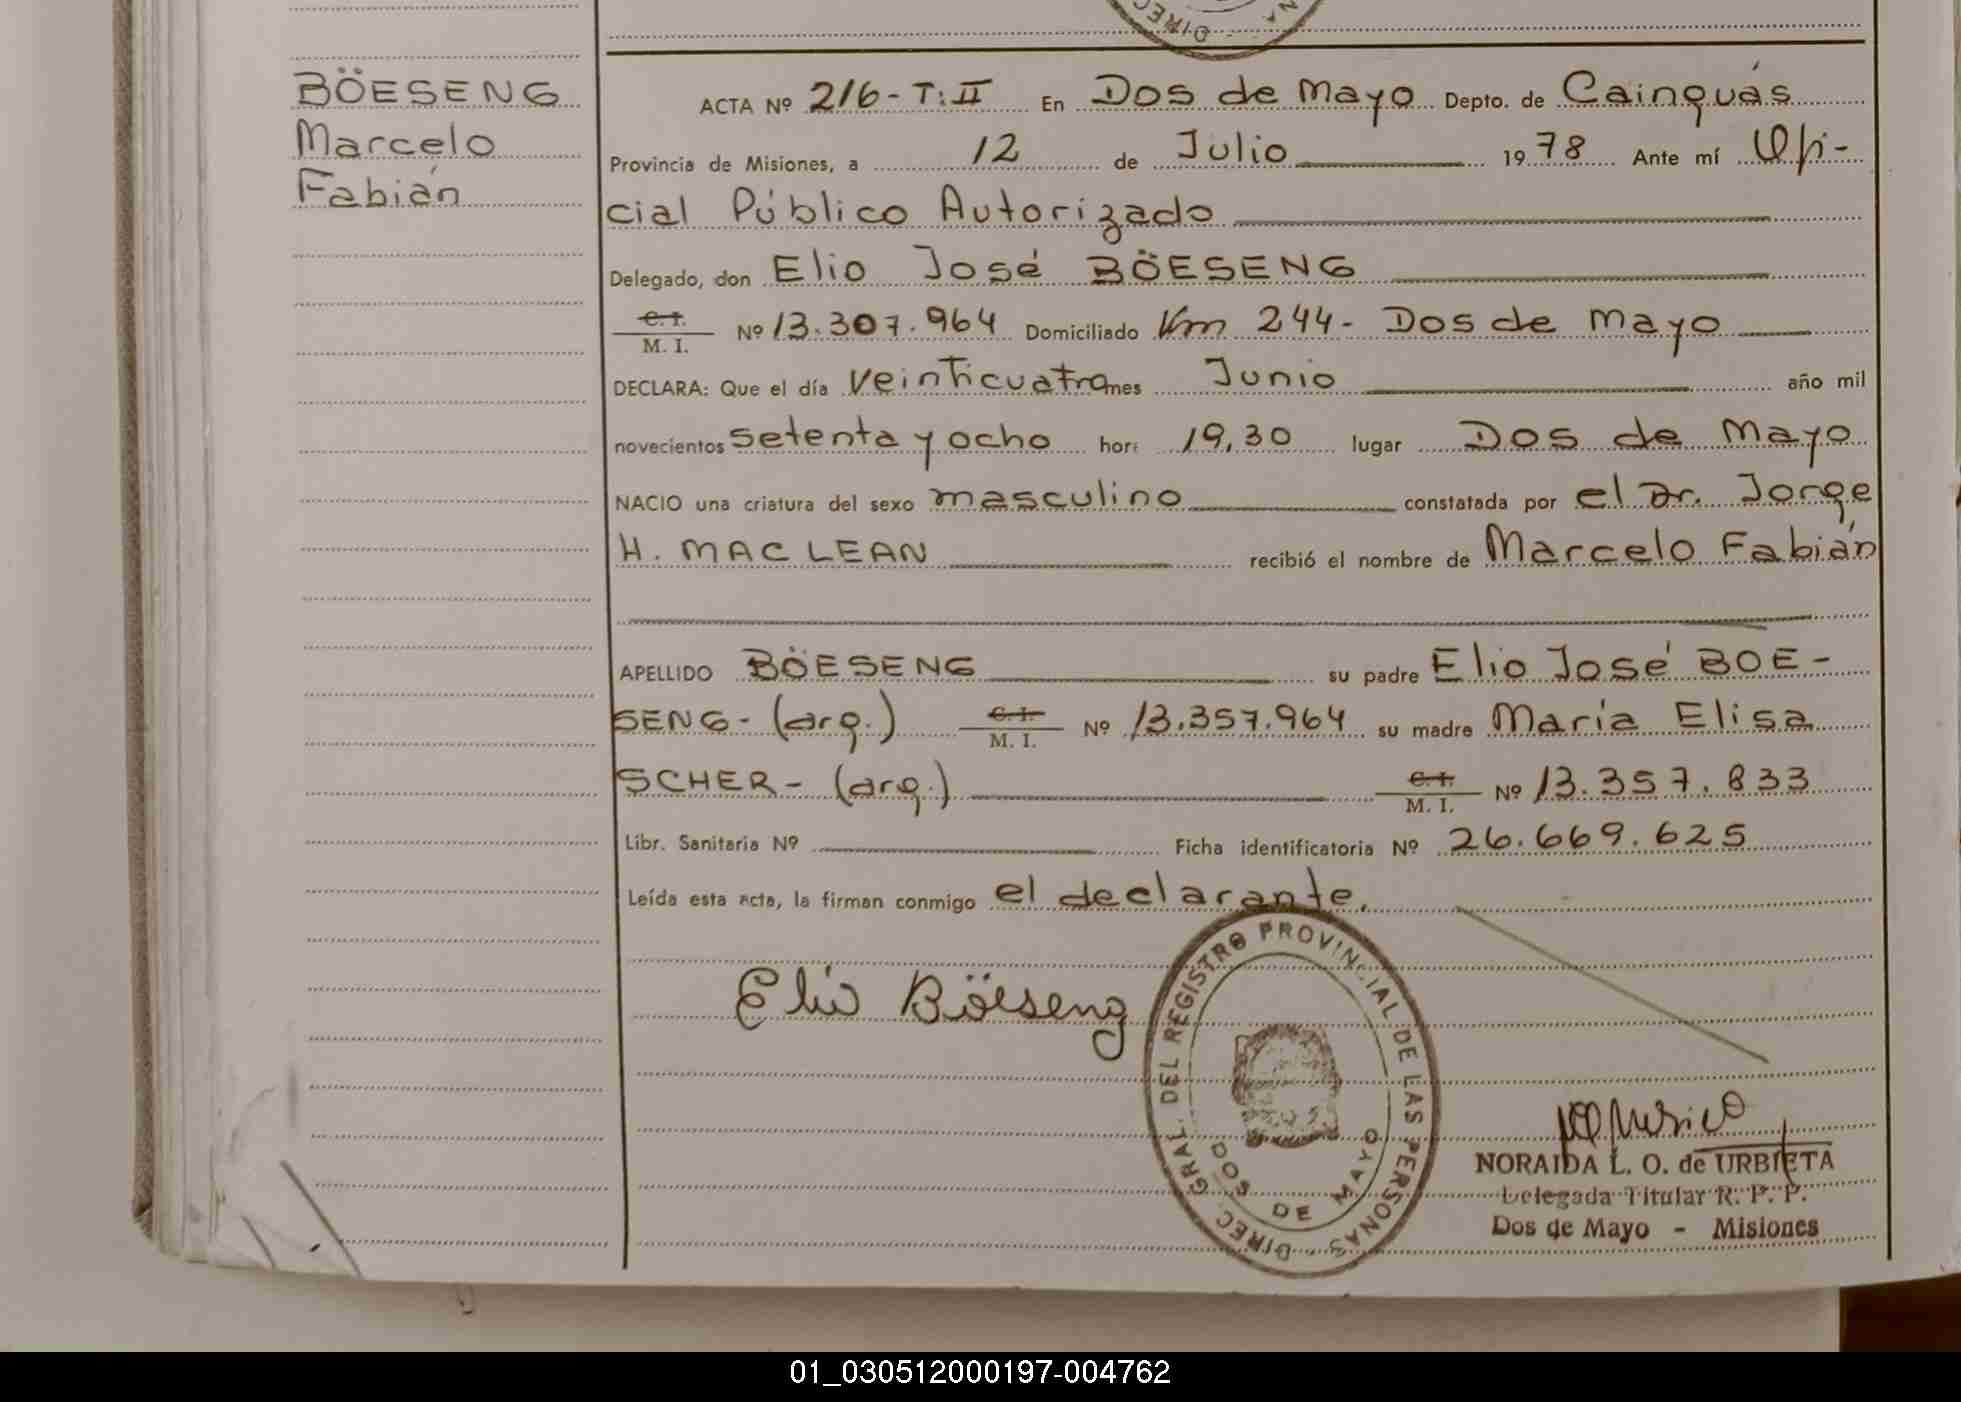 DIREC
BÖESENG
Marcelo
Fabián
ACTA Nº 216-T:II En Dos de Mayo Depto. de Cainguás
Provincia de Misiones, a 12 de Julio 1978 Ante mí Ofi-
cial Público Autorizado
Delegado, don Elio José BÖESENG
C. I.
M. I. Nº 13.307.964 Domiciliado Km 244- Dos de Mayo
DECLARA: Que el día veinticuatro mes Junio año mil
novecientos setenta y ocho hora 19,30 lugar Dos de Mayo
NACIO una criatura del sexo masculino constatada por el Dr. Jorge
H. MAC LEAN recibió el nombre de Marcelo Fabián
APELLIDO BÖESENG su padre Elio José BOE-
SENG- (arg.) C. I. M. I. Nº 13.357.964 su madre María Elisa
SCHER- (arg.) C. I. M. I. Nº 13.357.833
Libr. Sanitaria Nº Ficha identificatoria Nº 26.669.625
Leída esta acta, la firman conmigo el declarante.
Elio Böeseng
DIREC. GRAL. DEL REGISTRO PROVINCIAL DE LAS PERSONAS
DOS DE MAYO
NORAIDA L. O. de URBIETA
Delegada Titular R. P. P.
Dos de Mayo - Misiones
01_030512000197-004762